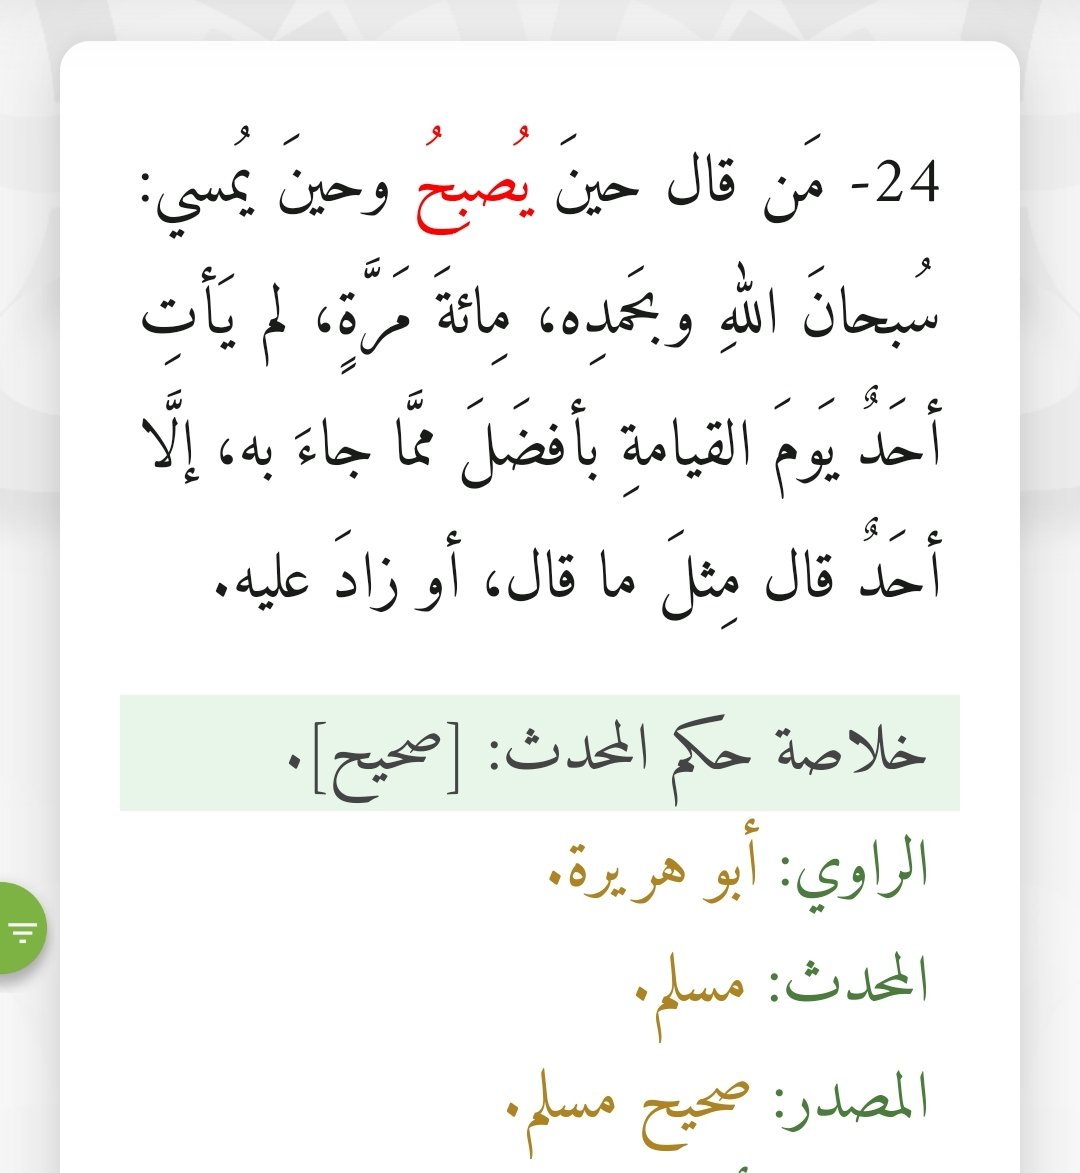 24- مَن قال حينَ يُصبحُ وحينَ يُمسي:
سُبحانَ اللهِ وبحَمدِه، مِائةَ مَرَّةٍ، لم يَأتِ
أحَدٌ يَومَ القيامةِ بأفضَلَ ممَّا جاءَ به، إلَّا
أحَدٌ قال مِثلَ ما قال، أو زادَ عليه.
خلاصة حكم المحدث: [صحيح].
الراوي: أبو هريرة.
المحدث: مسلم.
المصدر: صحيح مسلم.